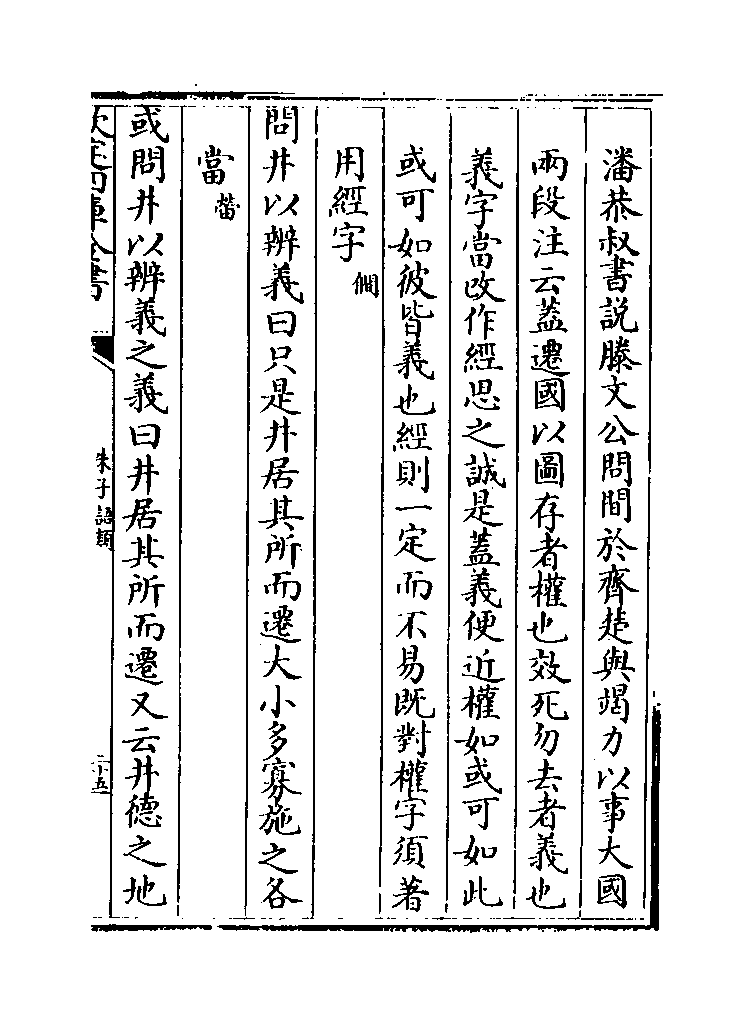 潘恭叔書説滕文公問間於齊楚與竭力以事大國
兩段注云蓋遷國以圖存者權也效死勿去者義也
義字當改作經思之誠是蓋義便近權如或可如此
或可如彼皆義也經則一定而不易既對權字須著
用經字 僩
問井以辨義曰只是井居其所而遷大小多寡施之各
當 㽦
或問井以辨義之義曰井居其所而遷又云井德之地
欽定四庫全書
朱子語類
二十五